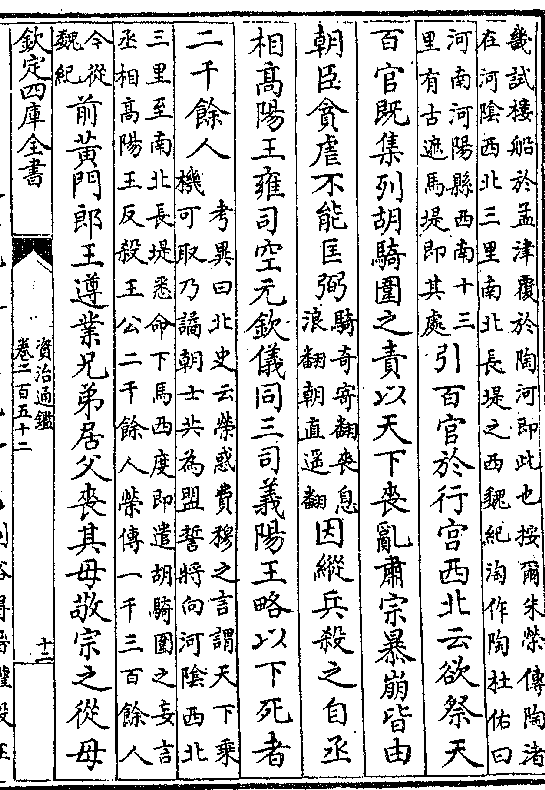 畿試樓船於孟津覆於陶河即此也按爾朱榮傳陶渚
在河陰西北三里南北長堤之西魏紀淘作陶杜佑曰
河南河陽縣西南十三
里有古遮馬堤即其處
引百官於行宫西北云欲祭天
百官既集列胡騎圍之責以天下喪亂肅宗暴崩皆由
朝臣貪虐不能匡弼
騎奇寄翻喪息
浪翻朝直遥翻
因縱兵殺之自丞
相高陽王雍司空元欽儀同三司義陽王略以下死者
二千餘人
考異曰北史云榮惑費穆之言謂天下乘
機可取乃譎朝士共為盟誓將向河陰西北
三里至南北長堤悉命下馬西度即遣胡騎圍之妄言
丞相高陽王反殺王公二千餘人榮傳一千三百餘人
今從
魏紀
前黄門郎王遵業兄弟居父喪其母敬宗之從母
欽定四庫全書
資治通鑑
卷二百五十二
十二